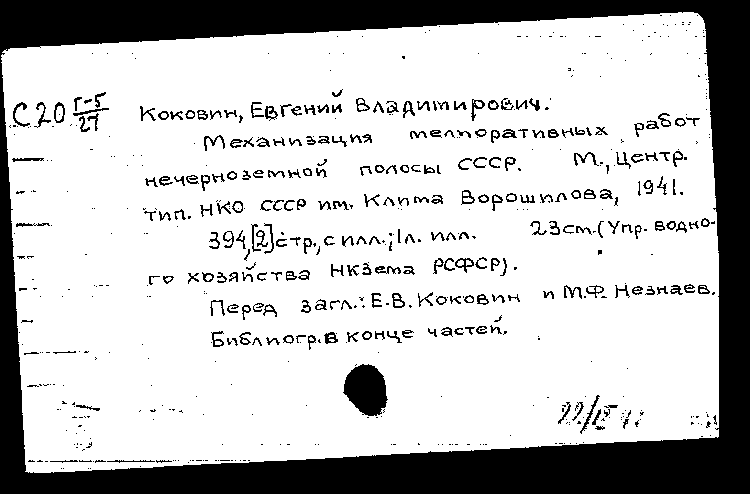 С20 Г-5/27
Коковин, Евгений Владимирович.
Механизация мелиоративных работ
нечерноземной полосы СССР. М., Центр.
тип. НКО СССР им. Клима Ворошилова, 1941.
394, [2] стр., с илл.; 1л. илл. 23см. (Упр. водно-
го хозяйства НКЗема РСФСР).
Перед загл.: Е.В. Коковин и М.Ф. Незнаев.
Библиогр. в конце частей.